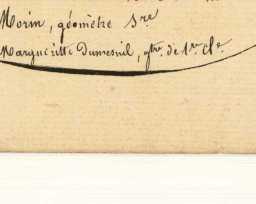 Morin, géomètre Sre
Marguéritte Dumesnil, gtre. de 1re cle.